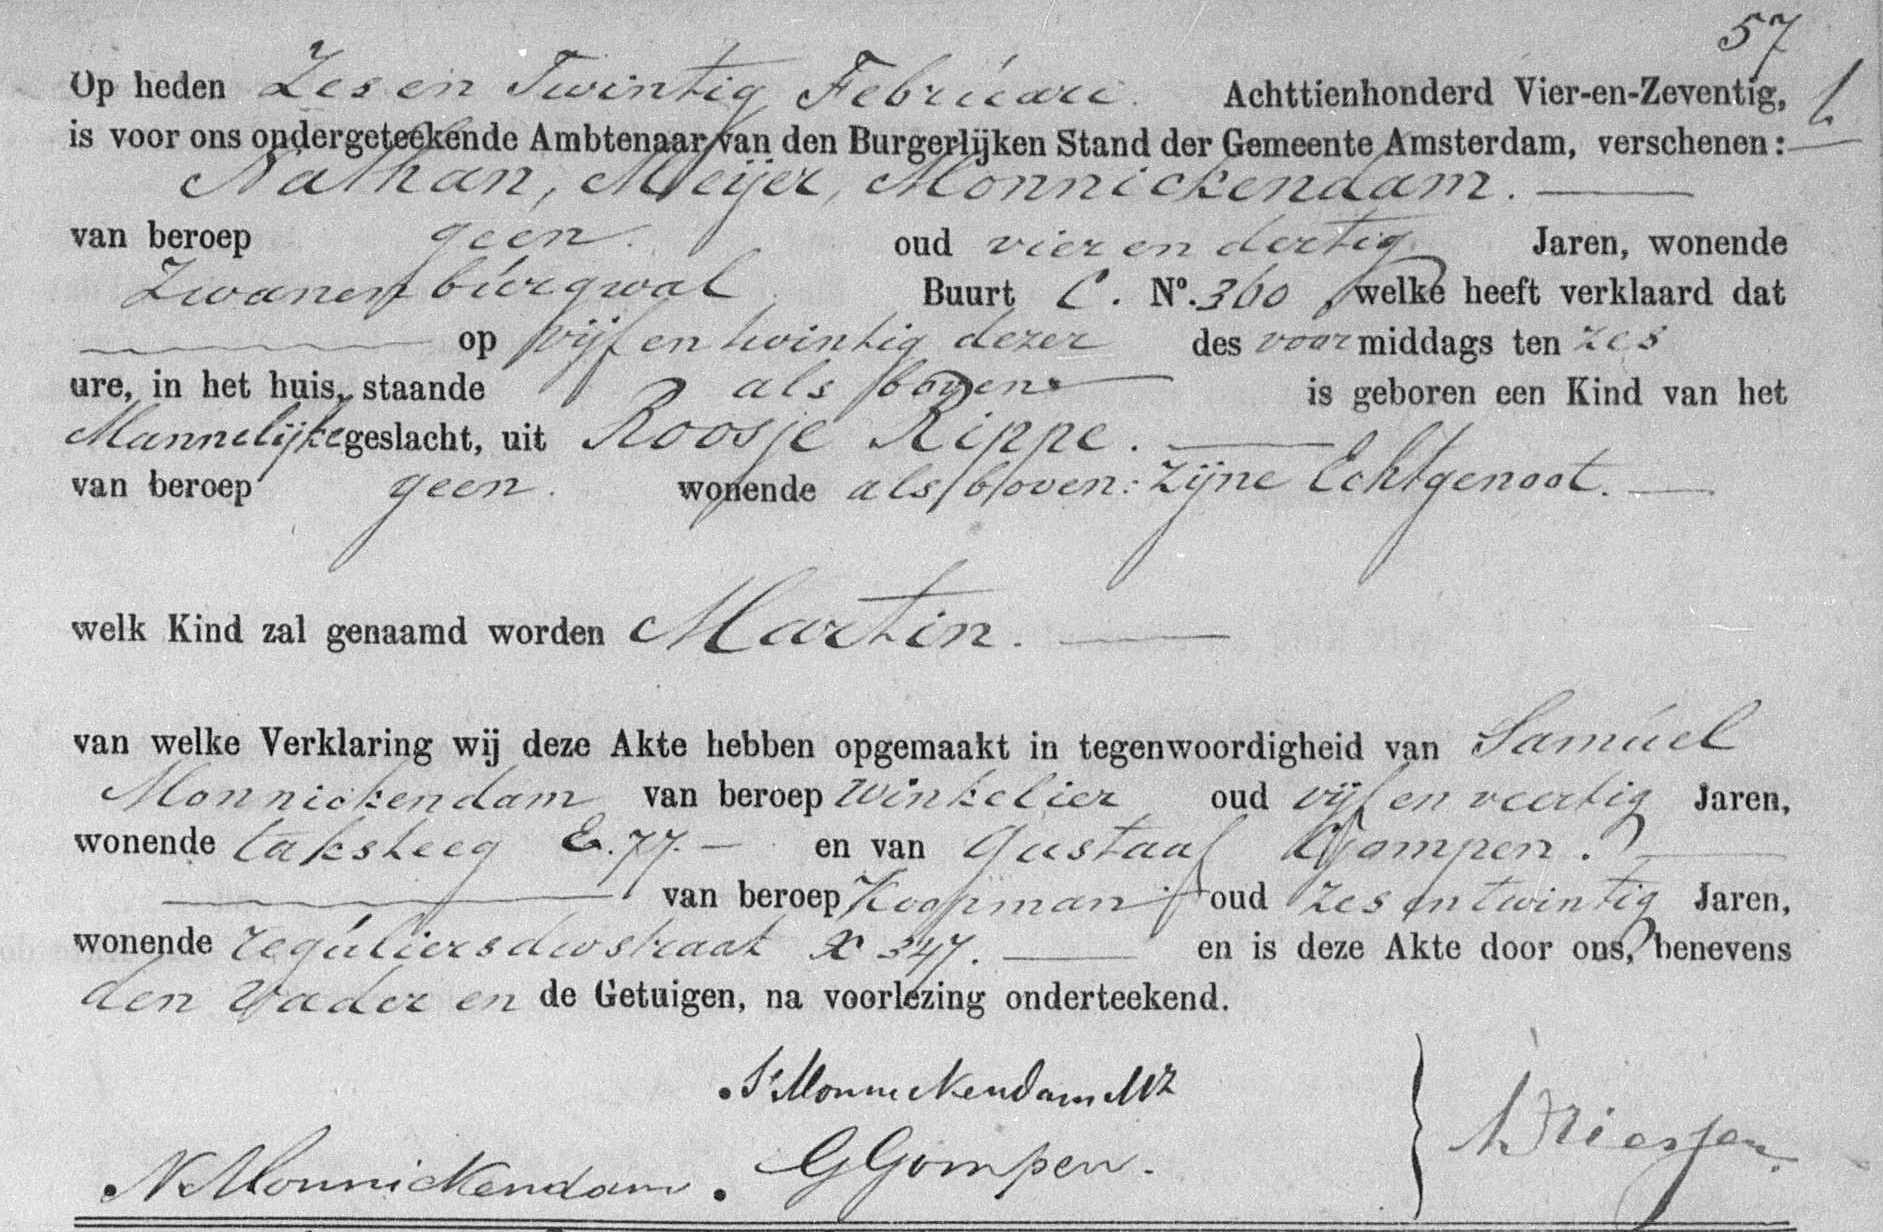 57
Op heden Zes en Twintig Februari. Achttienhonderd Vier-en-Zeventig,
is voor ons ondergeteekende Ambtenaar van den Burgerlijken Stand der Gemeente Amsterdam, verschenen:
Nathan, Meijer, Monnickendam.
van beroep geen. oud vier en dertig Jaren, wonende
Zwanenburgwal Buurt C. No. 360, welke heeft verklaard dat
op vijf en twintig dezer des voormiddags ten zes
ure, in het huis, staande als boven is geboren een Kind van het
Mannelijke geslacht, uit Roosje Rippe.
van beroep geen. wonende als boven: zijne Echtgenoot.
welk Kind zal genaamd worden Martin.
van welke Verklaring wij deze Akte hebben opgemaakt in tegenwoordigheid van Samuel
Monnickendam van beroep Winkelier oud vijf en veertig Jaren,
wonende taksteeg E. 77. en van Gustaaf Gompen.
van beroep Koopman oud zes en twintig Jaren,
wonende reguliersdwstraat X 347. en is deze Akte door ons, benevens
den Vader en de Getuigen, na voorlezing onderteekend.
S. Monnickendam Mz
N Monnickendam. G Gompen.